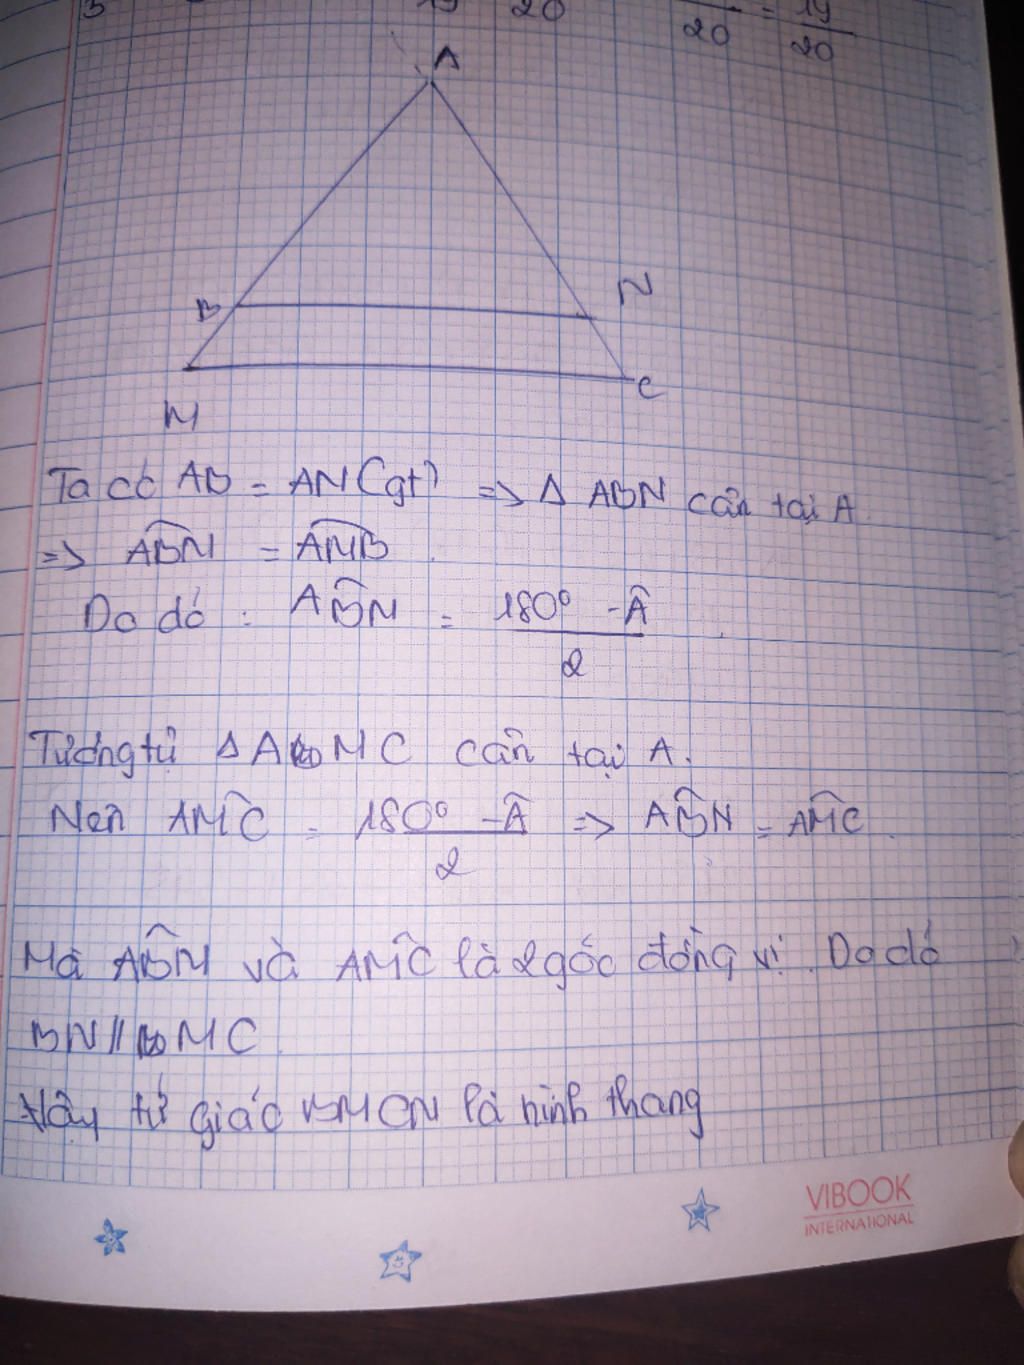 19 20
20 = 19
20
A
B N
M C
Ta có AB = AN (gt) => Δ ABN cân tại A
=> ABN̂ = ANB̂.
Do đó : AB̂N = 180° - Â
2
Tương tự Δ AMC cân tại A.
Nên AM̂C = 180° - Â => AB̂N = AM̂C.
2
Mà AB̂N và AM̂C là 2 góc đồng vị. Do đó
BN // MC.
Vậy tứ giác BMCN là hình thang
VIBOOK
INTERNATIONAL